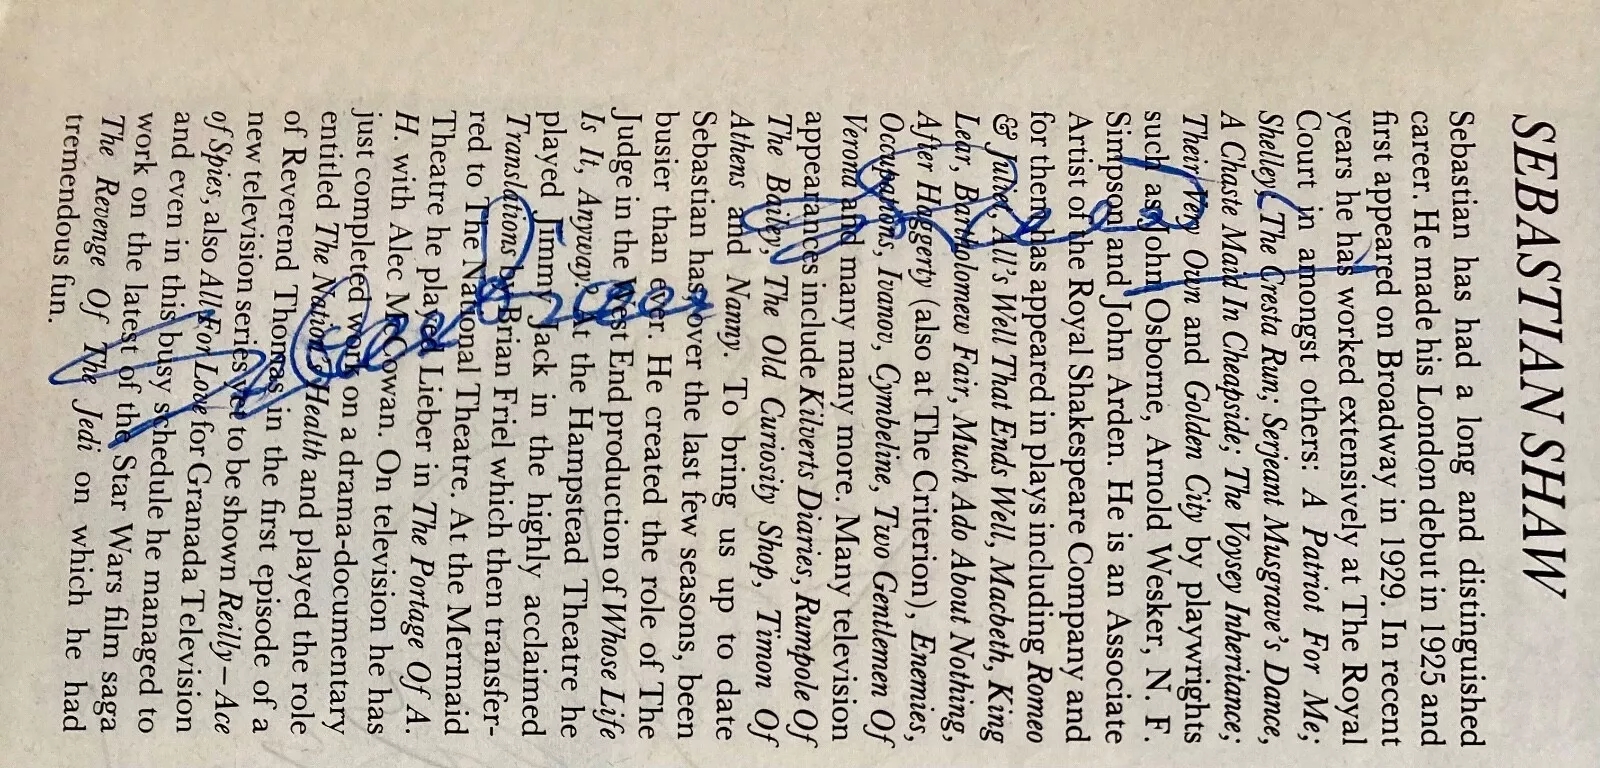 SEBASTIAN SHAW
Sebastian has had a long and distinguished
career. He made his London debut in 1925 and
first appeared on Broadway in 1929. In recent
years he has worked extensively at The Royal
Court in amongst others: A Patriot For Me;
Shelley; The Cresta Run; Serjeant Musgrave's Dance,
A Chaste Maid In Cheapside; The Voysey Inheritance;
Their Very Own and Golden City by playwrights
such as John Osborne, Arnold Wesker, N. F.
Simpson and John Arden. He is an Associate
Artist of the Royal Shakespeare Company and
for them has appeared in plays including Romeo
& Juliet, All's Well That Ends Well, Macbeth, King
Lear, Bartholomew Fair, Much Ado About Nothing,
After Haggerty (also at The Criterion), Enemies,
Occupations, Ivanov, Cymbeline, Two Gentlemen Of
Verona and many many more. Many television
appearances include Kilverts Diaries, Rumpole Of
The Bailey, The Old Curiosity Shop, Timon Of
Athens and Nanny. To bring us up to date
Sebastian has, over the last few seasons, been
busier than ever. He created the role of The
Judge in the West End production of Whose Life
Is It, Anyway? At the Hampstead Theatre he
played Jimmy Jack in the highly acclaimed
Translations by Brian Friel which then transfer-
red to The National Theatre. At the Mermaid
Theatre he played Lieber in The Portage Of A.
H. with Alec McCowan. On television he has
just completed work on a drama-documentary
entitled The Nation's Health and played the role
of Reverend Thomas in the first episode of a
new television series yet to be shown Reilly – Ace
of Spies, also All For Love for Granada Television
and even in this busy schedule he managed to
work on the latest of the Star Wars film saga
The Revenge Of The Jedi on which he had
tremendous fun.